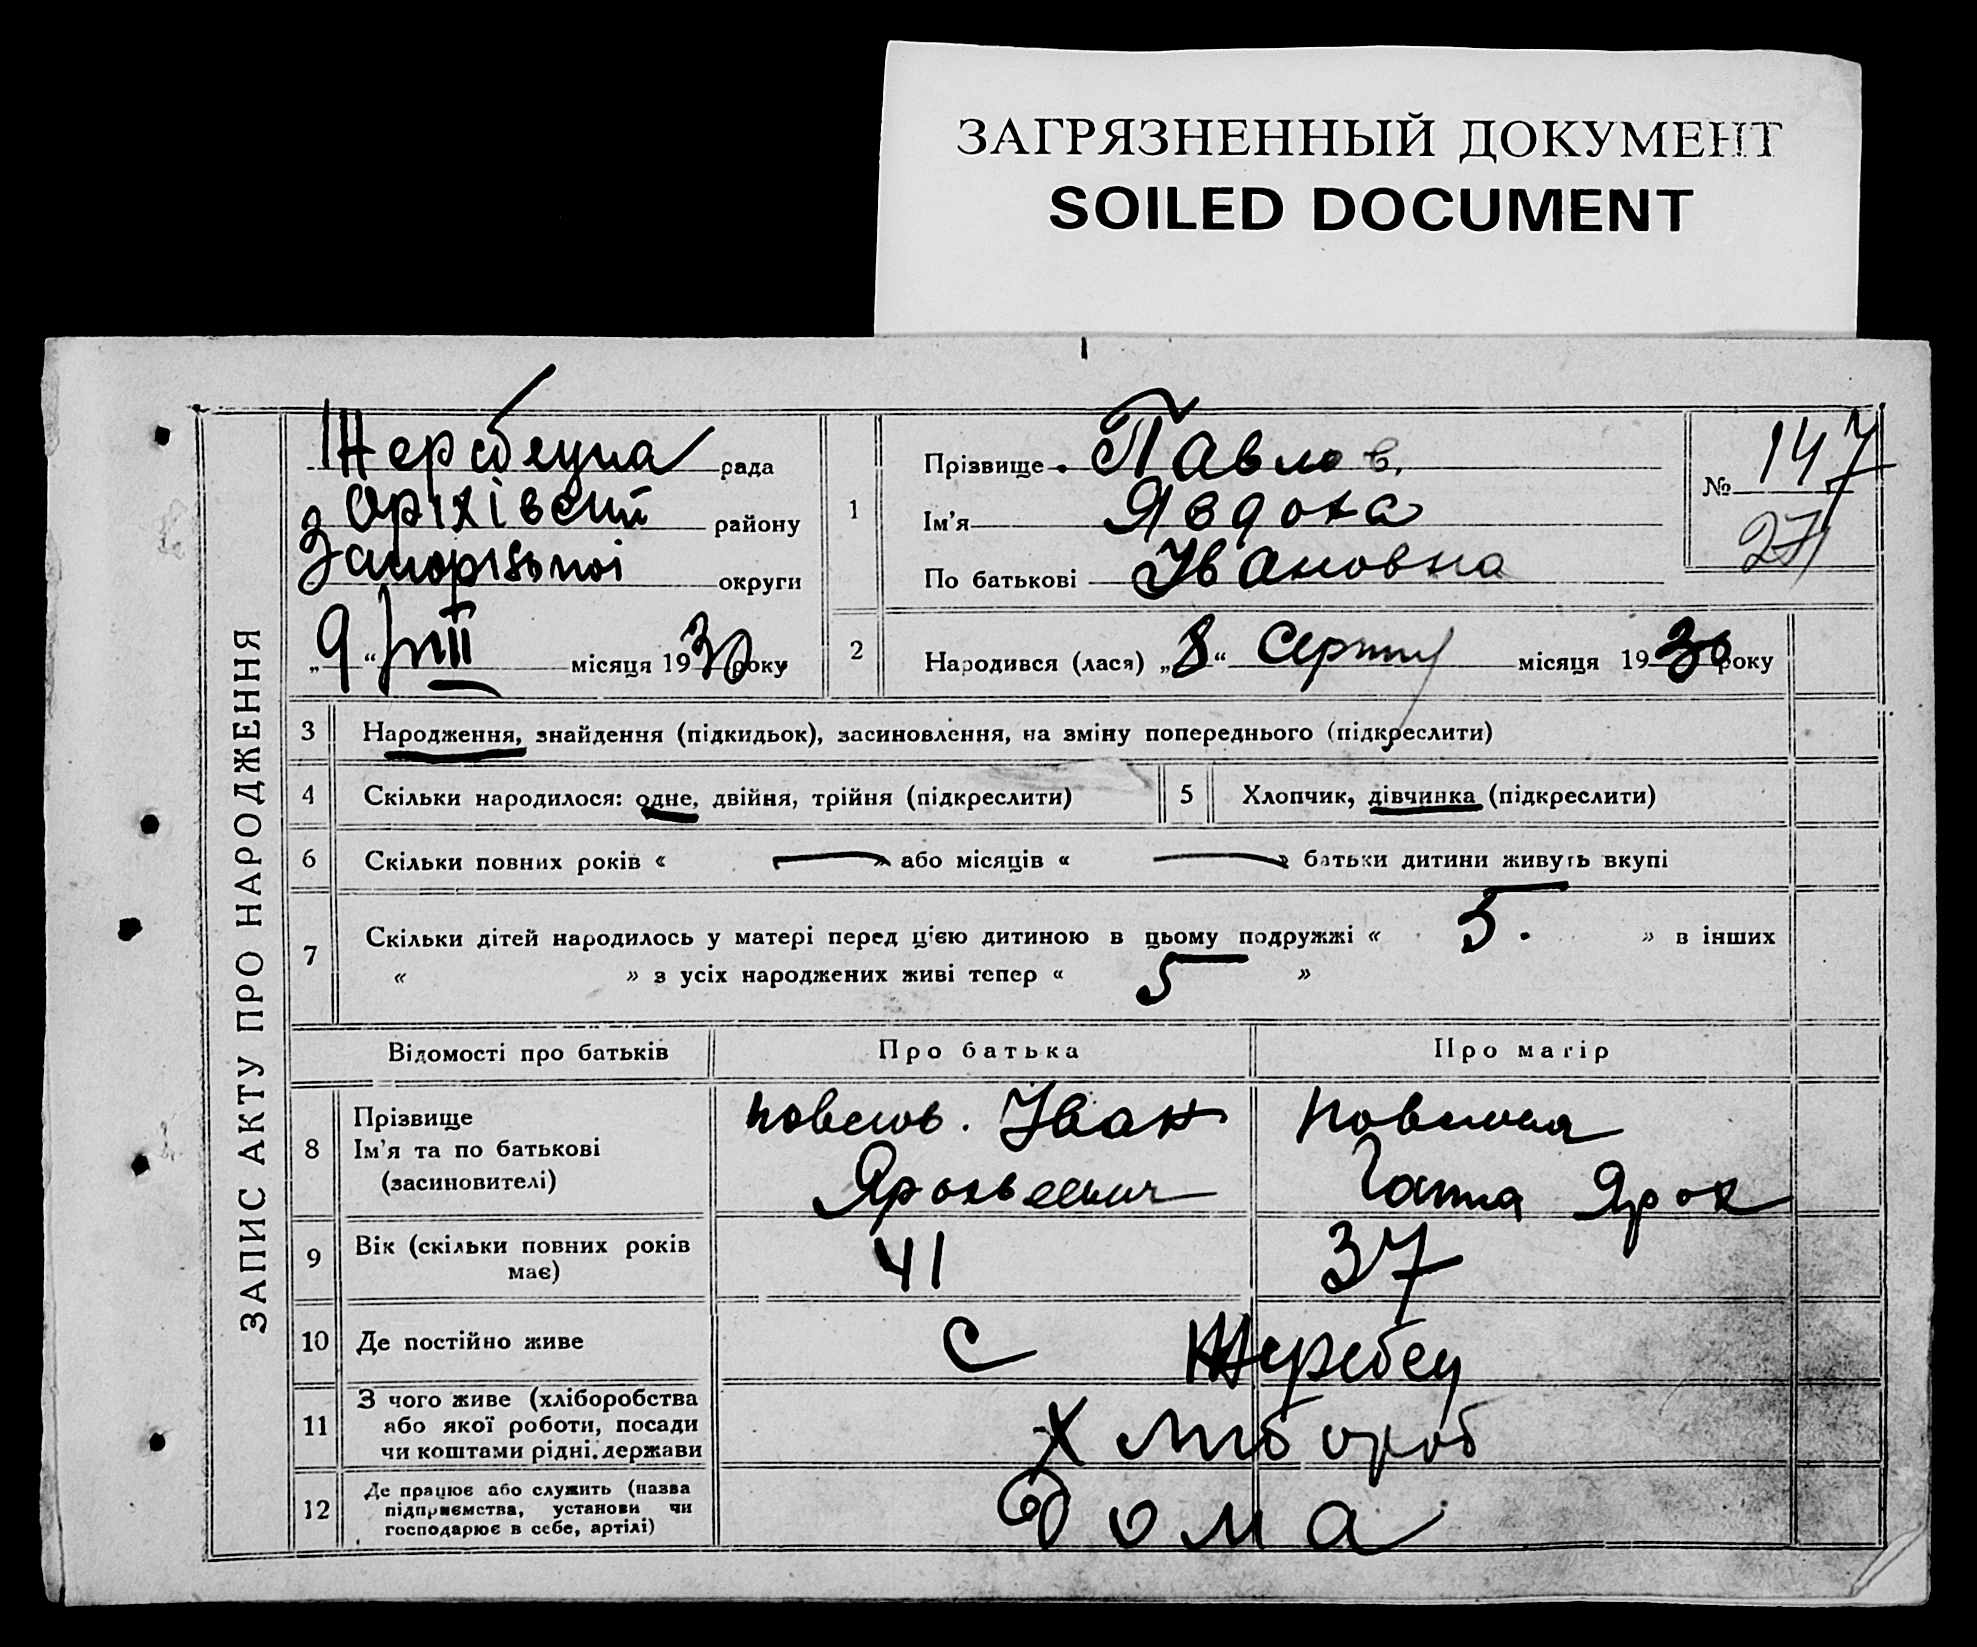 ЗАГРЯЗНЕННЫЙ ДОКУМЕНТ
SOILED DOCUMENT
ЗАПИС АКТУ ПРО НАРОДЖЕННЯ
Жеребецка рада
Оріхівский району
Запорізькоі округи
„9“ VIII місяця 1930 року
1
Прізвище Павлов.
Ім'я Явдоха
По батькові Івановна
№ 147
271
2
Народився (лася) „8“ Серпня місяця 1930 року
3 Народження, знайдення (підкидьок), засиновлення, на зміну попереднього (підкреслити)
4 Скільки народилося: одне, двійня, трійня (підкреслити)
5 Хлопчик, дівчинка (підкреслити)
6 Скільки повних років « — » або місяців « — » батьки дитини живуть вкупі
7 Скільки дітей народилось у матері перед цією дитиною в цьому подружжі « 5. » в інших
« » з усіх народжених живі тепер « 5 »
Відомості про батьків Про батька Про матір
8 Прізвище
Ім'я та по батькові
(засиновителі)
Павлов. Іван
Павлова
Ганна
9 Вік (скільки повних років
має)
41 37
10 Де постійно живе С Жеребец
11 З чого живе (хліборобства
або якої роботи, посади
чи коштами рідні, держави
Хлібороб
12 Де працює або служить (назва
підприємства, установи чи
господарює в себе, артілі)
Дома